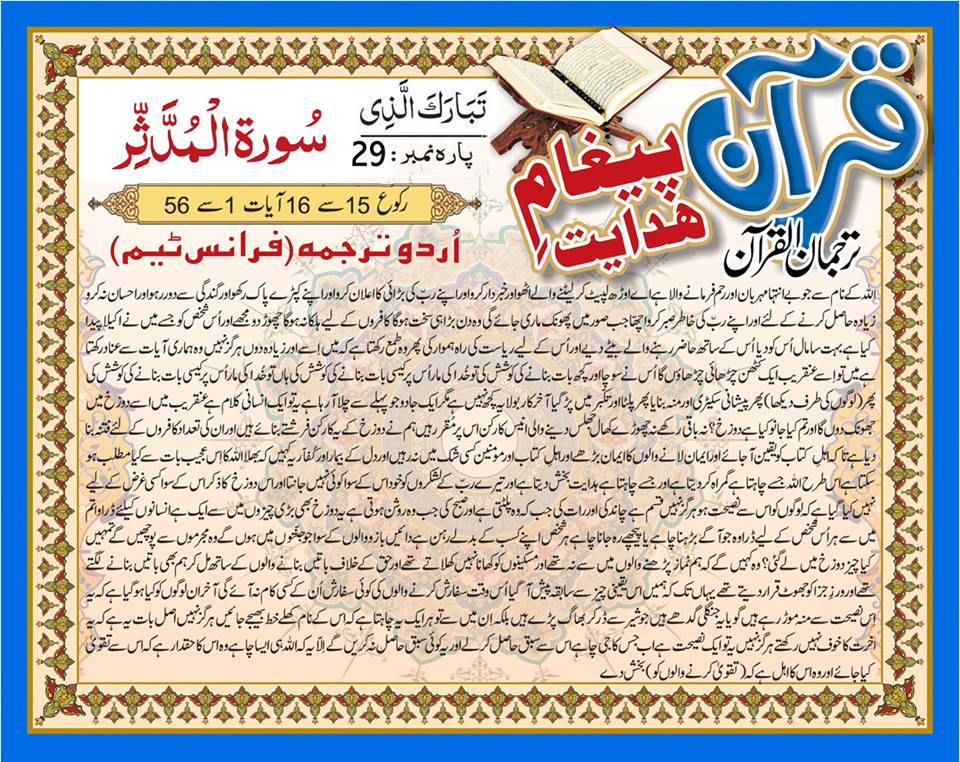 قرآن
پیغامِ
ھدایت
ترجمان القرآن
تَبَارَكَ الَّذِى
پارہ نمبر: 29
سُورة الْمُدَّثِّر
رکوع 15 سے 16 آیات 1 سے 56
اُردو ترجمہ (فرانس ٹیم)
اللہ کے نام سے جو بے انتہا مہربان اور رحم فرمانے والا ہے اے اوڑھ لپیٹ کر لیٹنے والے اٹھو اور خبردار کرو اور اپنے ربّ کی بڑائی کا اعلان کرو اور اپنے کپڑے پاک رکھو اور گندگی سے دور رہو اور احسان نہ کرو
زیادہ حاصل کرنے کے لئے اور اپنے ربّ کی خاطر صبر کرو اچھا جب صور میں پھونک ماری جائے گی وہ دن بڑا ہی سخت ہوگا کافروں کے لیے ہلکا نہ ہوگا چھوڑ دو مجھے اور اُس شخص کو جسے میں نے اکیلا پیدا
کیا ہے بہت سا مال اُس کو دیا اُس کے ساتھ حاضر رہنے والے بیٹے دیے اور اُس کے لیے ریاست کی راہ ہموار کی پھر وہ طمع رکھتا ہے کہ میں اسے اور زیادہ دوں ہرگز نہیں وہ ہماری آیات سے عناد رکھتا
ہے میں تو اسے عنقریب ایک کٹھن چڑھائی چڑھاؤں گا اُس نے سوچا اور کچھ بات بنانے کی کوشش کی تو خُدا کی مار اُس پر کیسی بات بنانے کی کوشش کی ہاں تو خُدا کی مار اُس پر کیسی بات بنانے کی کوشش کی
پھر (لوگوں کی طرف دیکھا) پھر پیشانی سکیڑی اور منہ بنایا پھر پلٹا اور تکبر میں پڑ گیا آخر کار بولا یہ کچھ نہیں ہے مگر ایک جادو جو پہلے سے چلا آ رہا ہے یہ تو ایک انسانی کلام ہے عنقریب میں اسے دوزخ میں
جھونک دوں گا اور تم کیا جانو کیا ہے دوزخ؟ نہ باقی رکھے نہ چھوڑے کھال جھلس دینے والی انیس کارکن اس پر مقرر ہیں ہم نے دوزخ کے یہ کارکن فرشتے بنائے ہیں اور ان کی تعداد کافروں کے لئے فتنہ بنا
دیا ہے تا کہ اہلِ کتاب کو یقین آجائے اور ایمان لانے والوں کا ایمان بڑھے اور اہل کتاب اور مومنین کسی شک میں نہ رہیں اور دل کے بیمار اور کفار یہ کہیں کہ بھلا اللہ کا اِس عجیب بات سے کیا مطلب ہو
سکتا ہے اس طرح اللہ جسے چاہتا ہے گمراہ کر دیتا ہے اور جسے چاہتا ہے ہدایت بخش دیتا ہے اور تیرے ربّ کے لشکروں کو خود اس کے سوا کوئی نہیں جانتا اور اس دوزخ کا ذکر اس کے سوا کسی غرض کے لیے
نہیں کیا گیا ہے کہ لوگوں کو اس سے نصیحت ہو ہرگز نہیں قسم ہے چاند کی اور رات کی جب کہ وہ پلٹتی ہے اور صبح کی جب وہ روشن ہوتی ہے یہ دوزخ بھی بڑی چیزوں میں سے ایک ہے انسانوں کیلئے ڈراوا تم
میں سے ہر اُس شخص کے لیے ڈراوہ جو آگے بڑھنا چاہے یا پیچھے رہ جانا چاہے ہر شخص اپنے کسب کے بدلے رہن ہے دائیں بازو والوں کے سوا جو جنتوں میں ہوں گے وہ مجرموں سے پوچھیں گے تمہیں
کیا چیز دوزخ میں لے گئی؟ وہ کہیں گے کہ ہم نماز پڑھنے والوں میں سے نہ تھے اور مسکینوں کو کھانا نہیں کھلاتے تھے اور حق کے خلاف باتیں بنانے والوں کے ساتھ مل کر ہم بھی باتیں بنانے لگتے
تھے اور روزِ جزا کو جھوٹ قرار دیتے تھے یہاں تک کہ ہمیں اس یقینی چیز سے سابقہ پیش آگیا اُس وقت سفارش کرنے والوں کی کوئی سفارش اُن کے کسی کام نہ آئے گی آخر ان لوگوں کو کیا ہو گیا ہے کہ یہ
اس نصیحت سے منہ موڑ رہے ہیں گویا یہ جنگلی گدھے ہیں جو شیر سے ڈر کر بھاگ پڑے ہیں بلکہ اِن میں سے تو ہر ایک یہ چاہتا ہے کہ اس کے نام کھلے خط بھیجے جائیں ہرگز نہیں اصل بات یہ ہے کہ یہ
آخرت کا خوف نہیں رکھتے ہرگز نہیں یہ تو ایک نصیحت ہے اب جس کا جی چاہے اس سے سبق حاصل کر لے اور یہ کوئی سبق حاصل نہ کریں گے اِلّا یہ کہ اللہ ہی ایسا چاہے وہ اس کا حقدار ہے کہ اس سے تقویٰ
کیا جائے اور وہ اس کا اہل ہے کہ (تقویٰ کرنے والوں کو) بخش دے